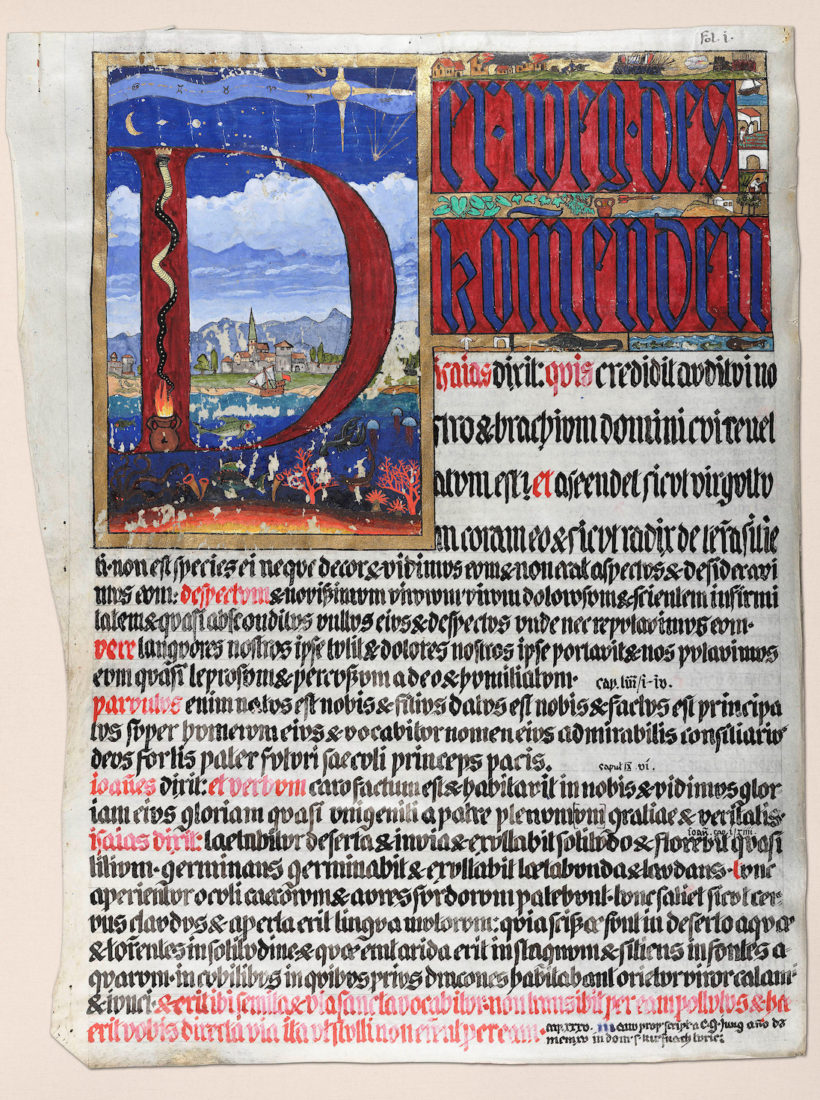 fol. i.
Der · weg · des
komenden
isaias dixit: qvis credidit avditvi no
stro & brachivm domini cvi revel
atvm est? et ascendet sicvt virgvltv
m coram eo & sicvt radix de terra sitie
ti· non est species ei neqve decor & vidimvs evm & non erat aspectvs & desideravi
mvs evm: despectvm & novissimvm virorvm virvm dolorvm & scientem infirmi
tatem & qvasi absconditvs vvltvs eivs & despectvs vnde nec repvtavimvs evm·
vere langvores nostros ipse tvlit & dolores nostros ipse portavit & nos pvtavimvs
evm qvasi leprosvm & percvssvm a deo & hvmiliatvm· cap. liii/i-iv.
parvvlvs enim natvs est nobis & filivs datvs est nobis & factvs est principa
tvs svper hvmervm eivs & vocabitvr nomen eivs admirabilis consiliarivs
devs fortis pater fvtvri saecvli princeps pacis. capvt ix vi.
ioañes dixit: et verbvm caro factvm est & habitavit in nobis & vidimvs glor
iam eivs gloriam qvasi vnigeniti a patre plenvm gratiae & veritatis·
ioañ. cap. i/xiiii.
isaias dixit: laetabitvr deserta & invia & exvltabit solitvdo & florebit qvasi
lilivm· germinans germinabit & exvltabit laetabvnda & lavdans· tvnc
aperientvr ocvli caecorvm & avres svrdorvm patebvnt· tvnc saliet sicvt cer
vvs clavdvs & aperta erit lingva mvtorvm: qvia scissæ svnt in deserto aqvæ
& torentes in solitvdine & qvæ erat arida erit in stagnvm & sitiens in fontes a
qvarvm· in cvbilibvs in qvibvs privs dracones habitabant orietvr viror calami
& ivnci· & erit ibi semita & via sancta vocabitvr· non transibit per eam pollvtvs & hæc
erit vobis directa via ita vt stvlti non errent per eam· cap. xxxv. manv propr script a C. G. Jung año dm
mcmxv in domv s. kvsnach tvric: